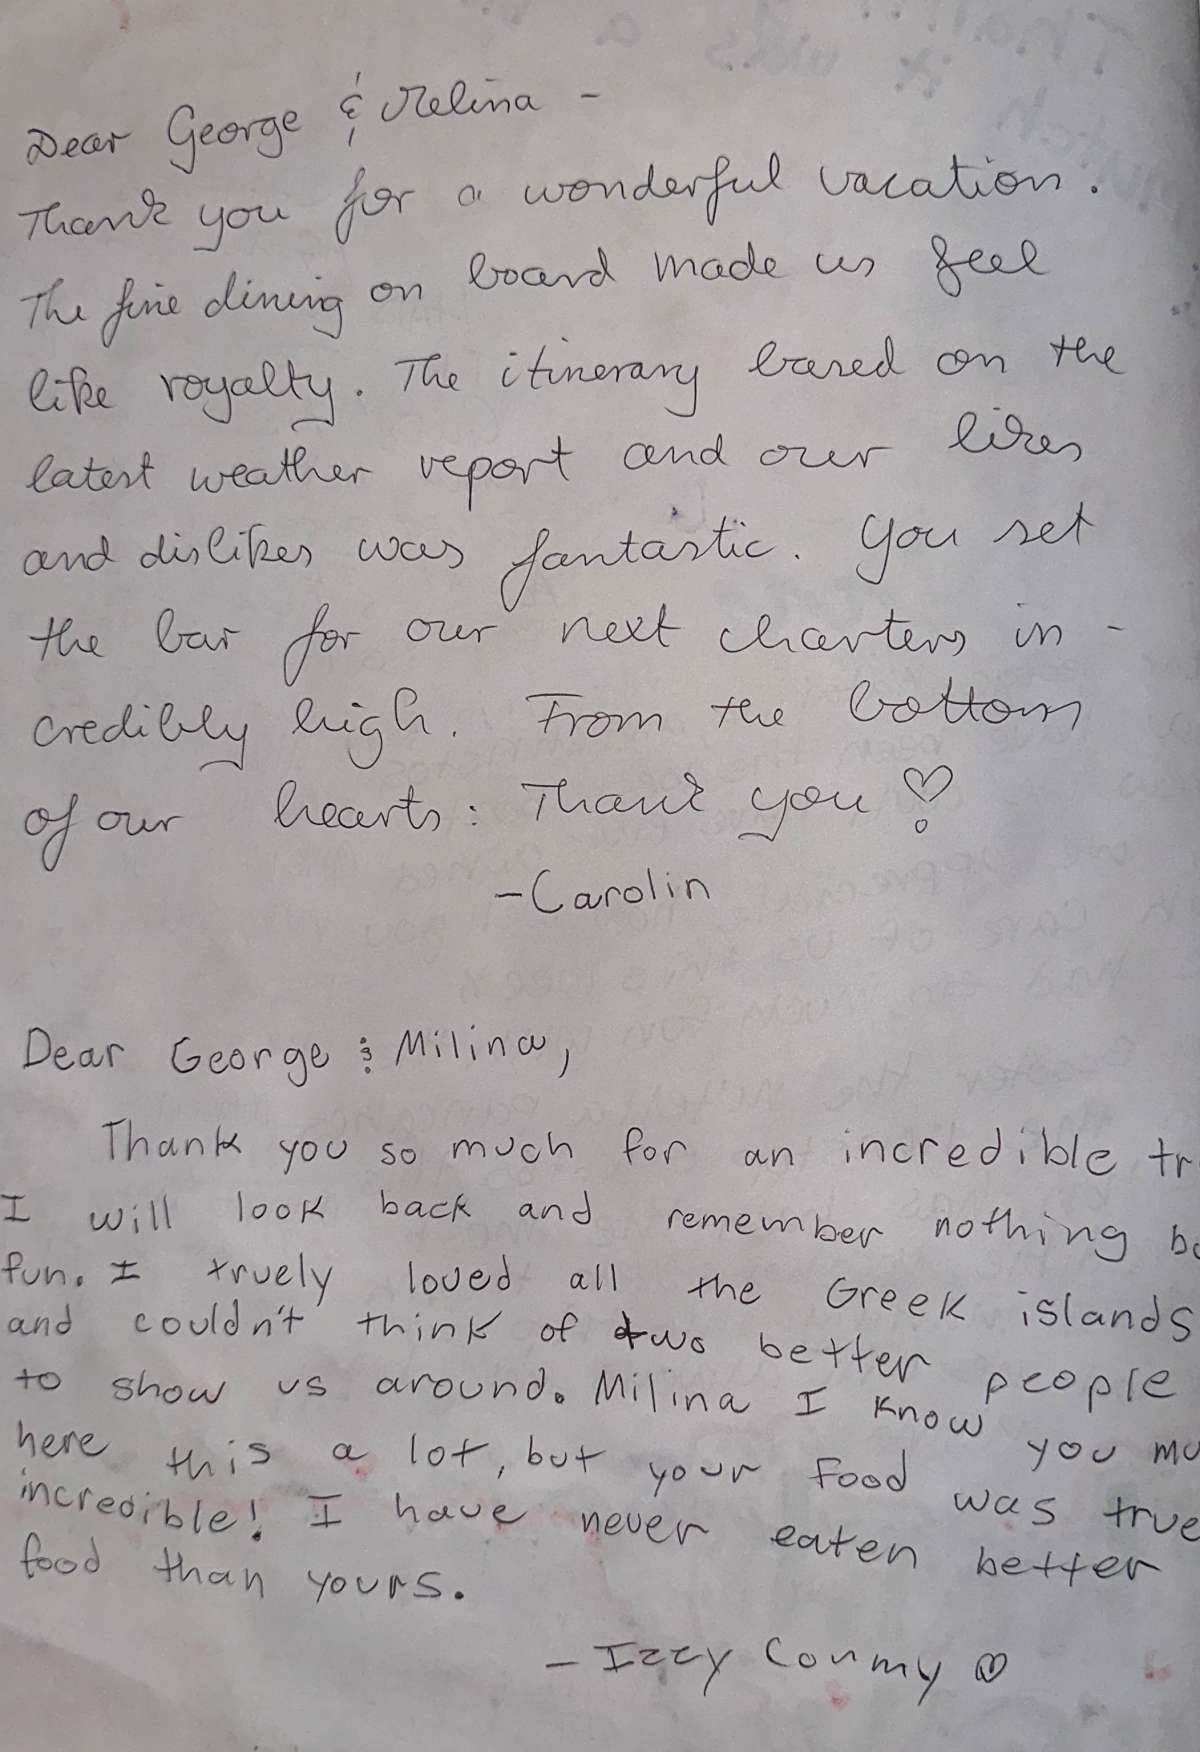 Dear George & Melina -
Thank you for a wonderful vacation.
The fine dining on board made us feel
like royalty. The itinerary based on the
latest weather report and our likes
and dislikes was fantastic. You set
the bar for our next charters in-
credibly high. From the bottom
of our hearts: Thank you ♡
-Carolin
Dear George & Milina,
Thank you so much for an incredible tr
I will look back and remember nothing
fun. I truely loved all the Greek islands
and couldn't think of two better people
to show us around. Milina I know you mu
here this a lot, but your food was true
incredible! I have never eaten better
food than yours.
- Izzy Conmy ♡